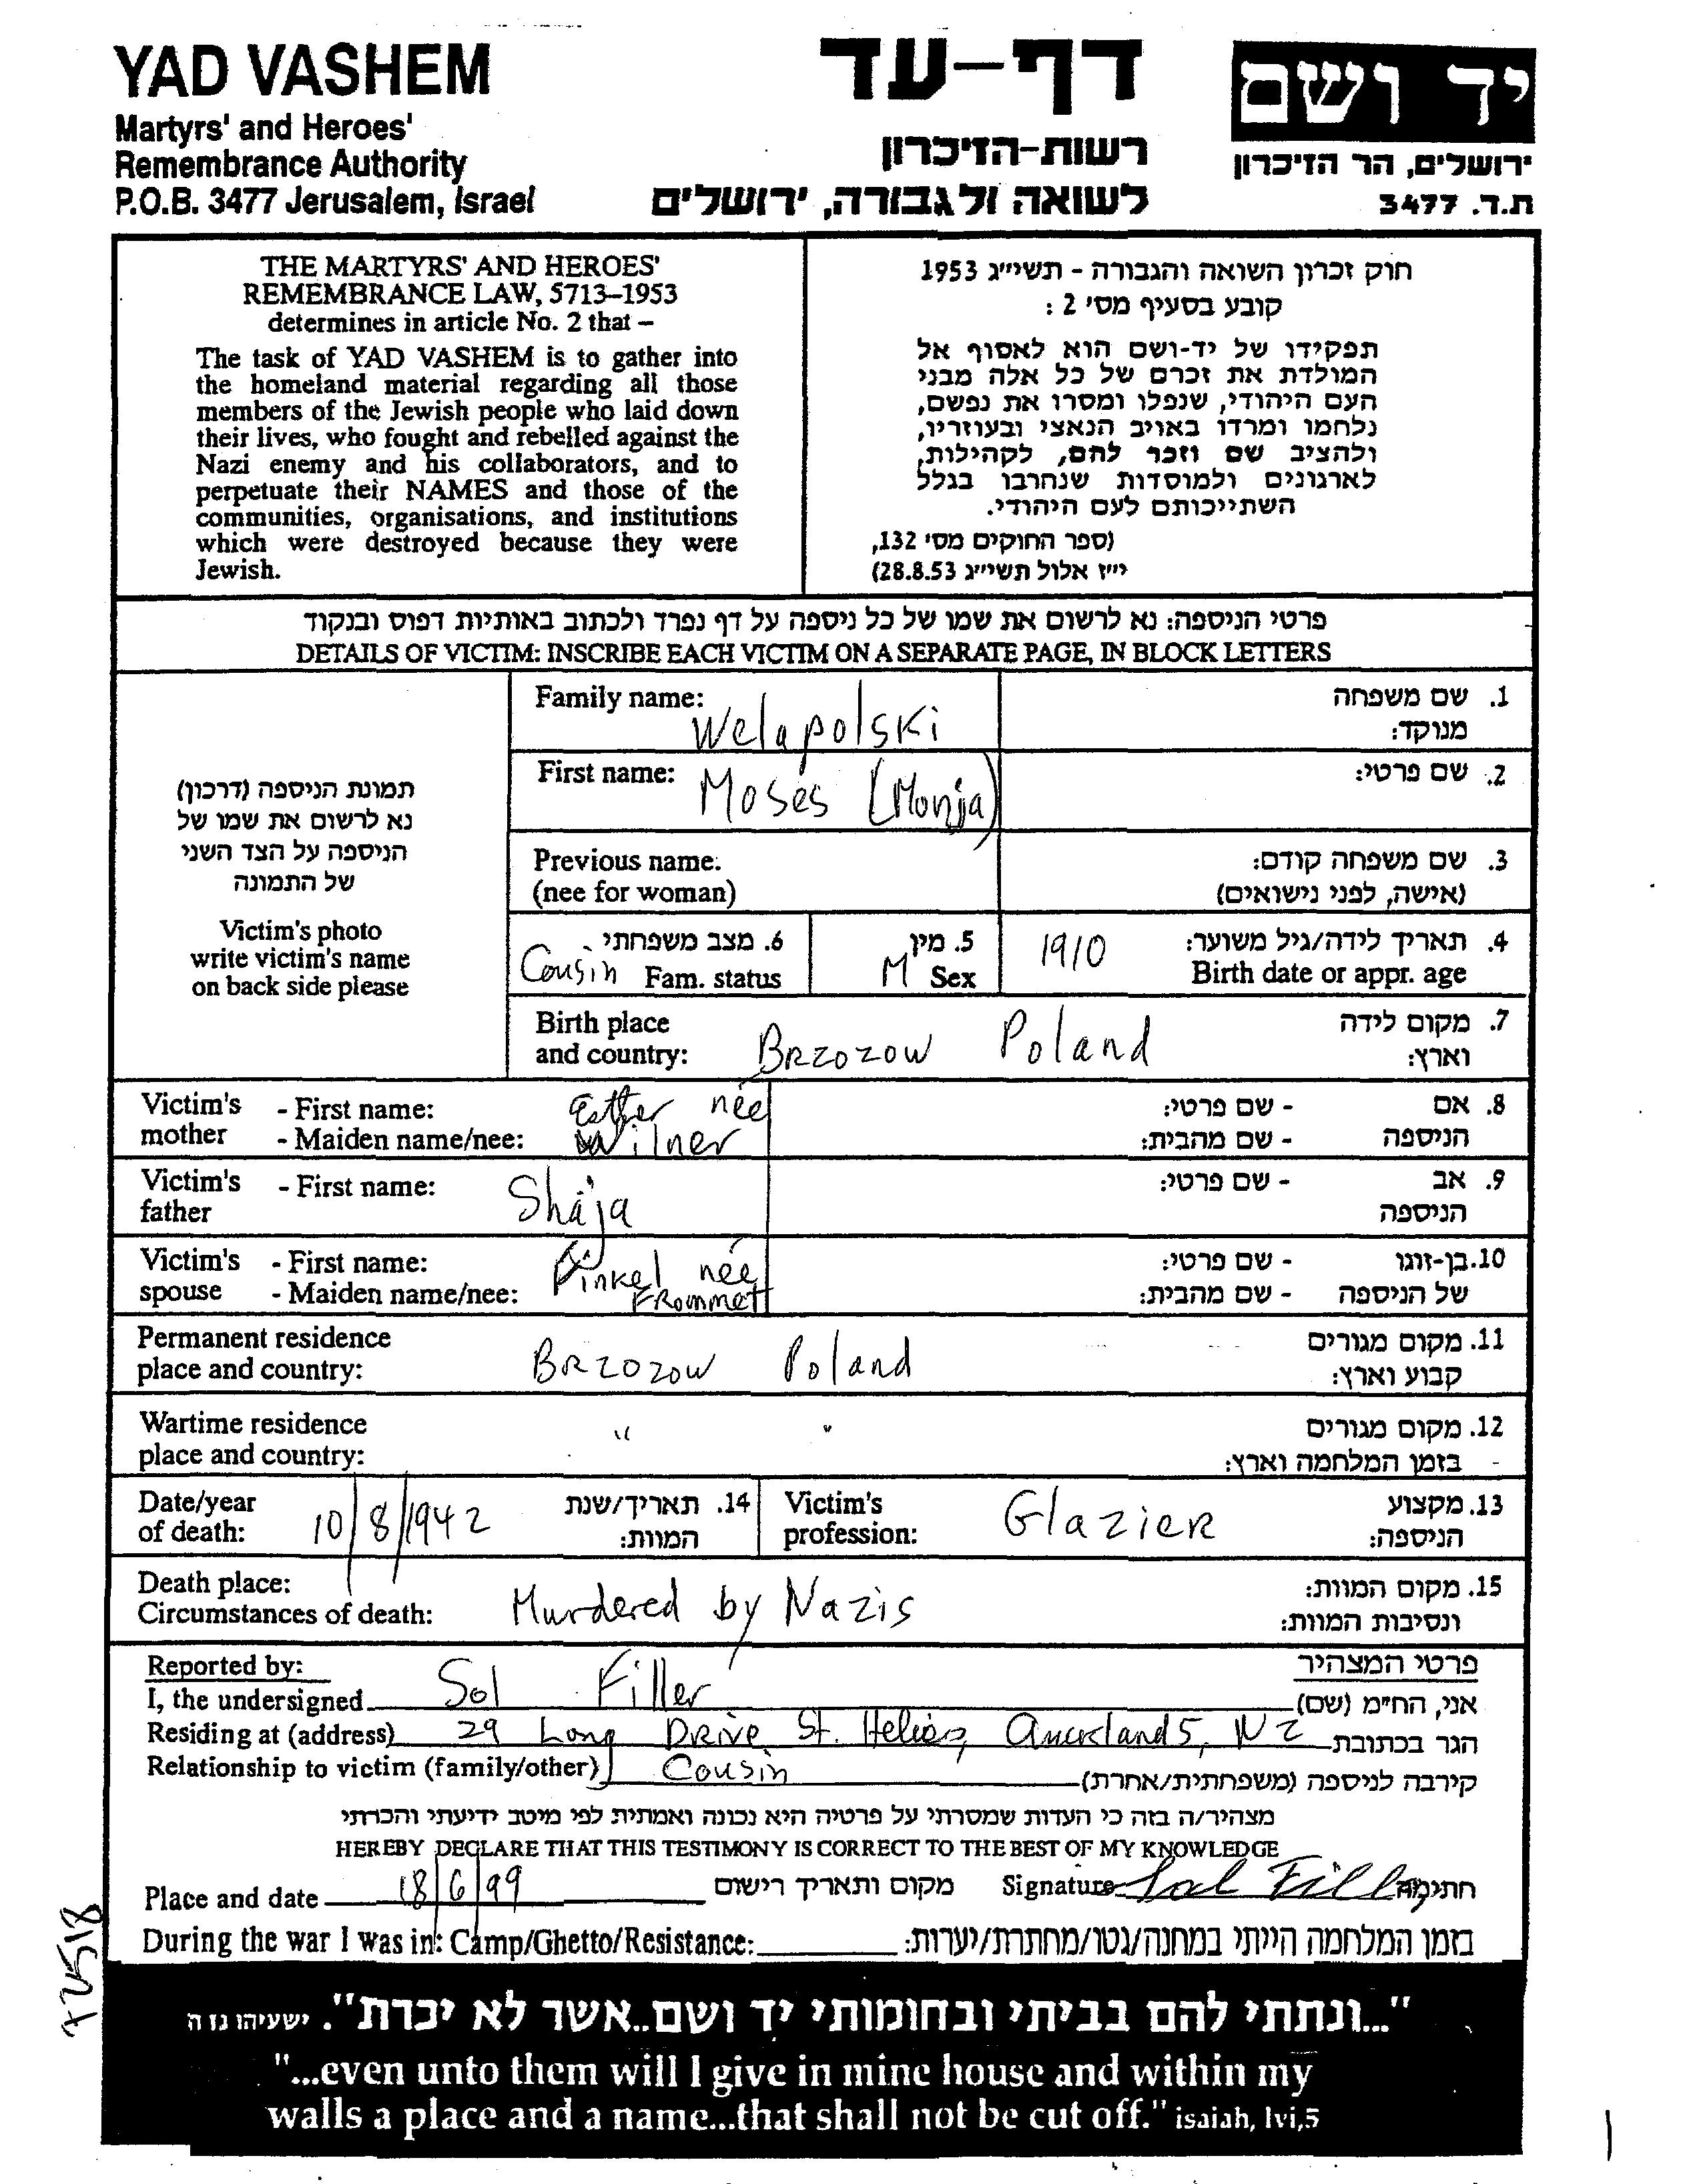 YAD VASHEM
Martyrs' and Heroes'
Remembrance Authority
P.O.B. 3477 Jerusalem, Israel
דף-עד
רשות-הזיכרון
לשואה ולגבורה, ירושלים
יד ושם
ירושלים, הר הזיכרון
ת.ד. 3477
THE MARTYRS' AND HEROES'
REMEMBRANCE LAW, 5713–1953
determines in article No. 2 that –
The task of YAD VASHEM is to gather into
the homeland material regarding all those
members of the Jewish people who laid down
their lives, who fought and rebelled against the
Nazi enemy and his collaborators, and to
perpetuate their NAMES and those of the
communities, organisations, and institutions
which were destroyed because they were
Jewish.
חוק זכרון השואה והגבורה - תשי״ג 1953
קובע בסעיף מס׳ 2 :
תפקידו של יד-ושם הוא לאסוף אל
המולדת את זכרם של כל אלה מבני
העם היהודי, שנפלו ומסרו את נפשם,
נלחמו ומרדו באויב הנאצי ובעוזריו,
ולהציב שם וזכר להם, לקהילות,
לארגונים ולמוסדות שנחרבו בגלל
השתייכותם לעם היהודי.
(ספר החוקים מס׳ 132,
י״ז אלול תשי״ג 28.8.53)
פרטי הניספה: נא לרשום את שמו של כל ניספה על דף נפרד ולכתוב באותיות דפוס ובנקוד
DETAILS OF VICTIM: INSCRIBE EACH VICTIM ON A SEPARATE PAGE, IN BLOCK LETTERS
תמונת הניספה (דרכון)
נא לרשום את שמו של
הניספה על הצד השני
של התמונה
Victim's photo
write victim's name
on back side please
Family name: Welapolski 1. שם משפחה
מנוקד:
First name: Moses (Monja) 2. שם פרטי:
Previous name. 3. שם משפחה קודם:
(nee for woman) (אישה, לפני נישואים)
Cousin 6. מצב משפחתי Fam. status
M 5. מין Sex
1910 4. תאריך לידה/גיל משוער:
Birth date or appr. age
Birth place 7. מקום לידה
and country: Brzozow Poland וארץ:
Victim's - First name: Esther née - שם פרטי: 8. אם
mother - Maiden name/nee: Wilner - שם מהבית: הניספה
Victim's - First name: Shaja - שם פרטי: 9. אב
father הניספה
Victim's - First name: Finkel née - שם פרטי: 10. בן-זוגו
spouse - Maiden name/nee: Frommet - שם מהבית: של הניספה
Permanent residence 11. מקום מגורים
place and country: Brzozow Poland קבוע וארץ:
Wartime residence " " 12. מקום מגורים
place and country: בזמן המלחמה וארץ:
Date/year 14. תאריך/שנת
of death: 10/8/1942 המוות:
Victim's 13. מקצוע
profession: Glazier הניספה:
Death place: 15. מקום המוות:
Circumstances of death: Murdered by Nazis ונסיבות המוות:
Reported by: פרטי המצהיר
I, the undersigned Sol Filler אני, הח״מ (שם)
Residing at (address) 29 Long Drive St. Heliers, Auckland 5, NZ הגר בכתובת
Relationship to victim (family/other) Cousin קירבה לניספה (משפחתית/אחרת)
מצהיר/ה בזה כי העדות שמסרתי על פרטיה היא נכונה ואמתית לפי מיטב ידיעתי והכרתי
HEREBY DECLARE THAT THIS TESTIMONY IS CORRECT TO THE BEST OF MY KNOWLEDGE
Place and date 18/6/99 מקום ותאריך רישום Signature Sol Filler חתימה
During the war I was in: Camp/Ghetto/Resistance: בזמן המלחמה הייתי במחנה/גטו/מחתרת/יערות:
"...ונתתי להם בביתי ובחומותי יד ושם..אשר לא יכרת". ישעיהו נו ה
"...even unto them will I give in mine house and within my
walls a place and a name...that shall not be cut off." isaiah, lvi,5